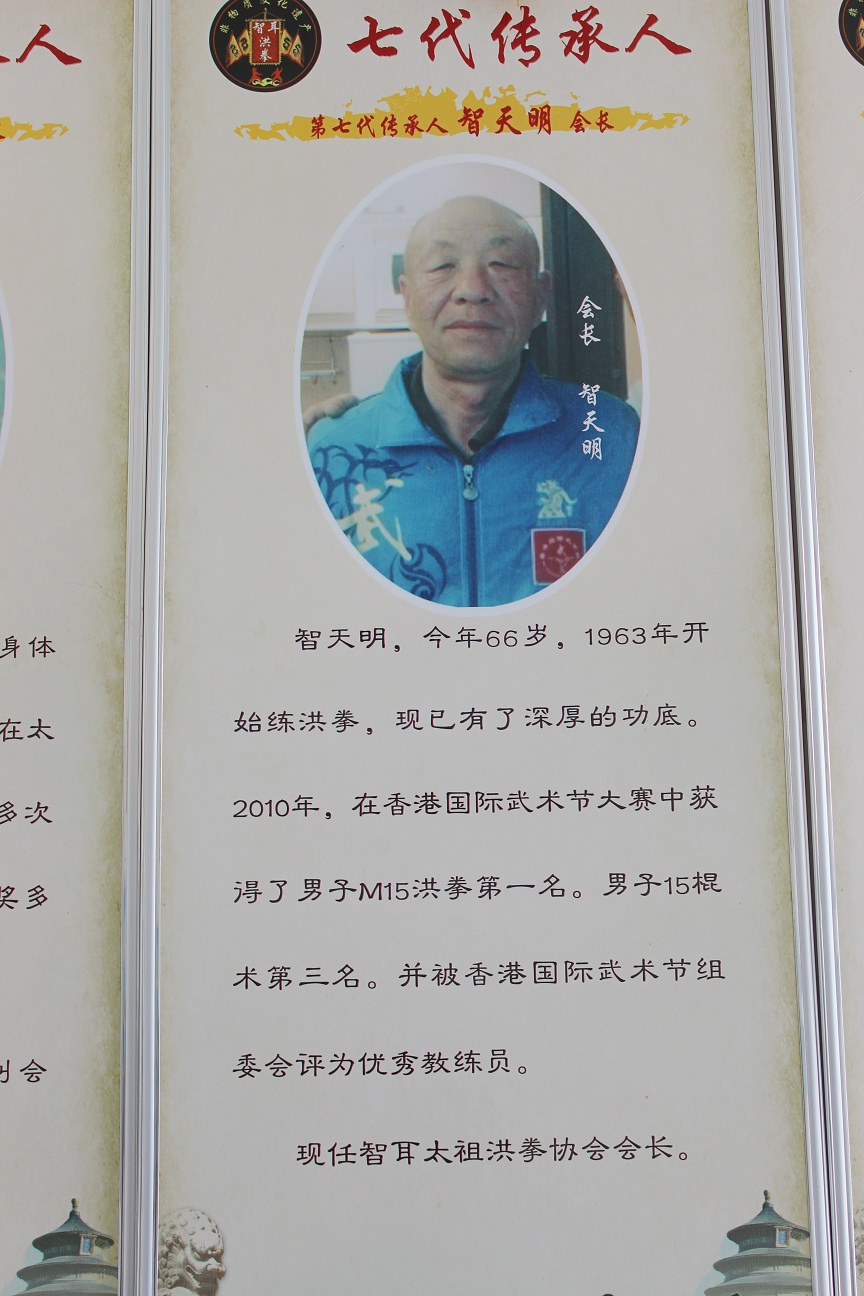 非物质文化遗产
智耳
洪拳
七代传承人
人
第七代传承人 智天明 会长
会长 智天明
武
智天明，今年66岁，1963年开
始练洪拳，现已有了深厚的功底。
2010年，在香港国际武术节大赛中获
得了男子M15洪拳第一名。男子15棍
术第三名。并被香港国际武术节组
委会评为优秀教练员。
现任智耳太祖洪拳协会会长。
身体
在太
多次
奖多
会